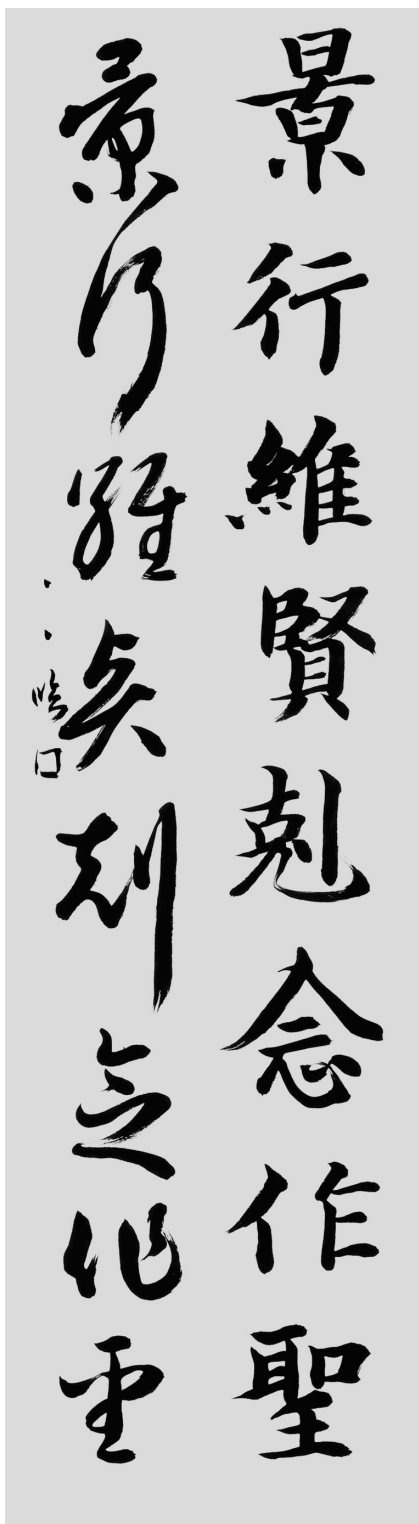 景行維賢剋念作聖
景行維賢剋念作聖